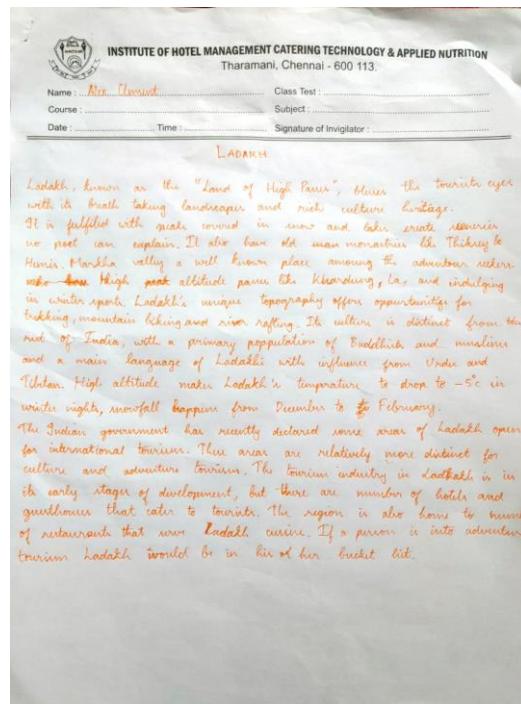 INSTITUTE OF HOTEL MANAGEMENT CATERING TECHNOLOGY & APPLIED NUTRITION
Tharamani, Chennai - 600 113.
Name : Alex Clement Class Test :
Course : Subject :
Date : Time : Signature of Invigilator :
LADAKH
Ladakh, known as the "Land of High Passes", the tourists eyes
with its breath taking landscapes and rich culture heritage.
It is fulfilled with peaks covered in snow and lakes, create sceneries
no poet can explain. It also have old monastries like Thiksey &
Hemis. Markha valley a well known place among the adventour seekers.
High altitude passes like Khardung, La, and indulging
in winter sports. Ladakh's unique topography offers for
trekking, mountain biking and river rafting. Its culture is distinct from the
of India, with a primary of and muslims
and a main language of Ladakhi with influence from Urdu and
Tibetan. High altitude makes Ladakh's to drop to -5°c in
winter nights, snowfall happens from December to February.
The Indian government has recently declared some areas of Ladakh open
for international tourism. These areas are relatively more distinct for
culture and adventure tourism. The tourism industry in is in
its early stages of development, but there are number of hotels and
guesthouses that cater to tourists. The region is also home to
of restaurants that serve Ladakh cuisine. If a person is into adventure
tourism Ladakh would be in his of her bucket list.